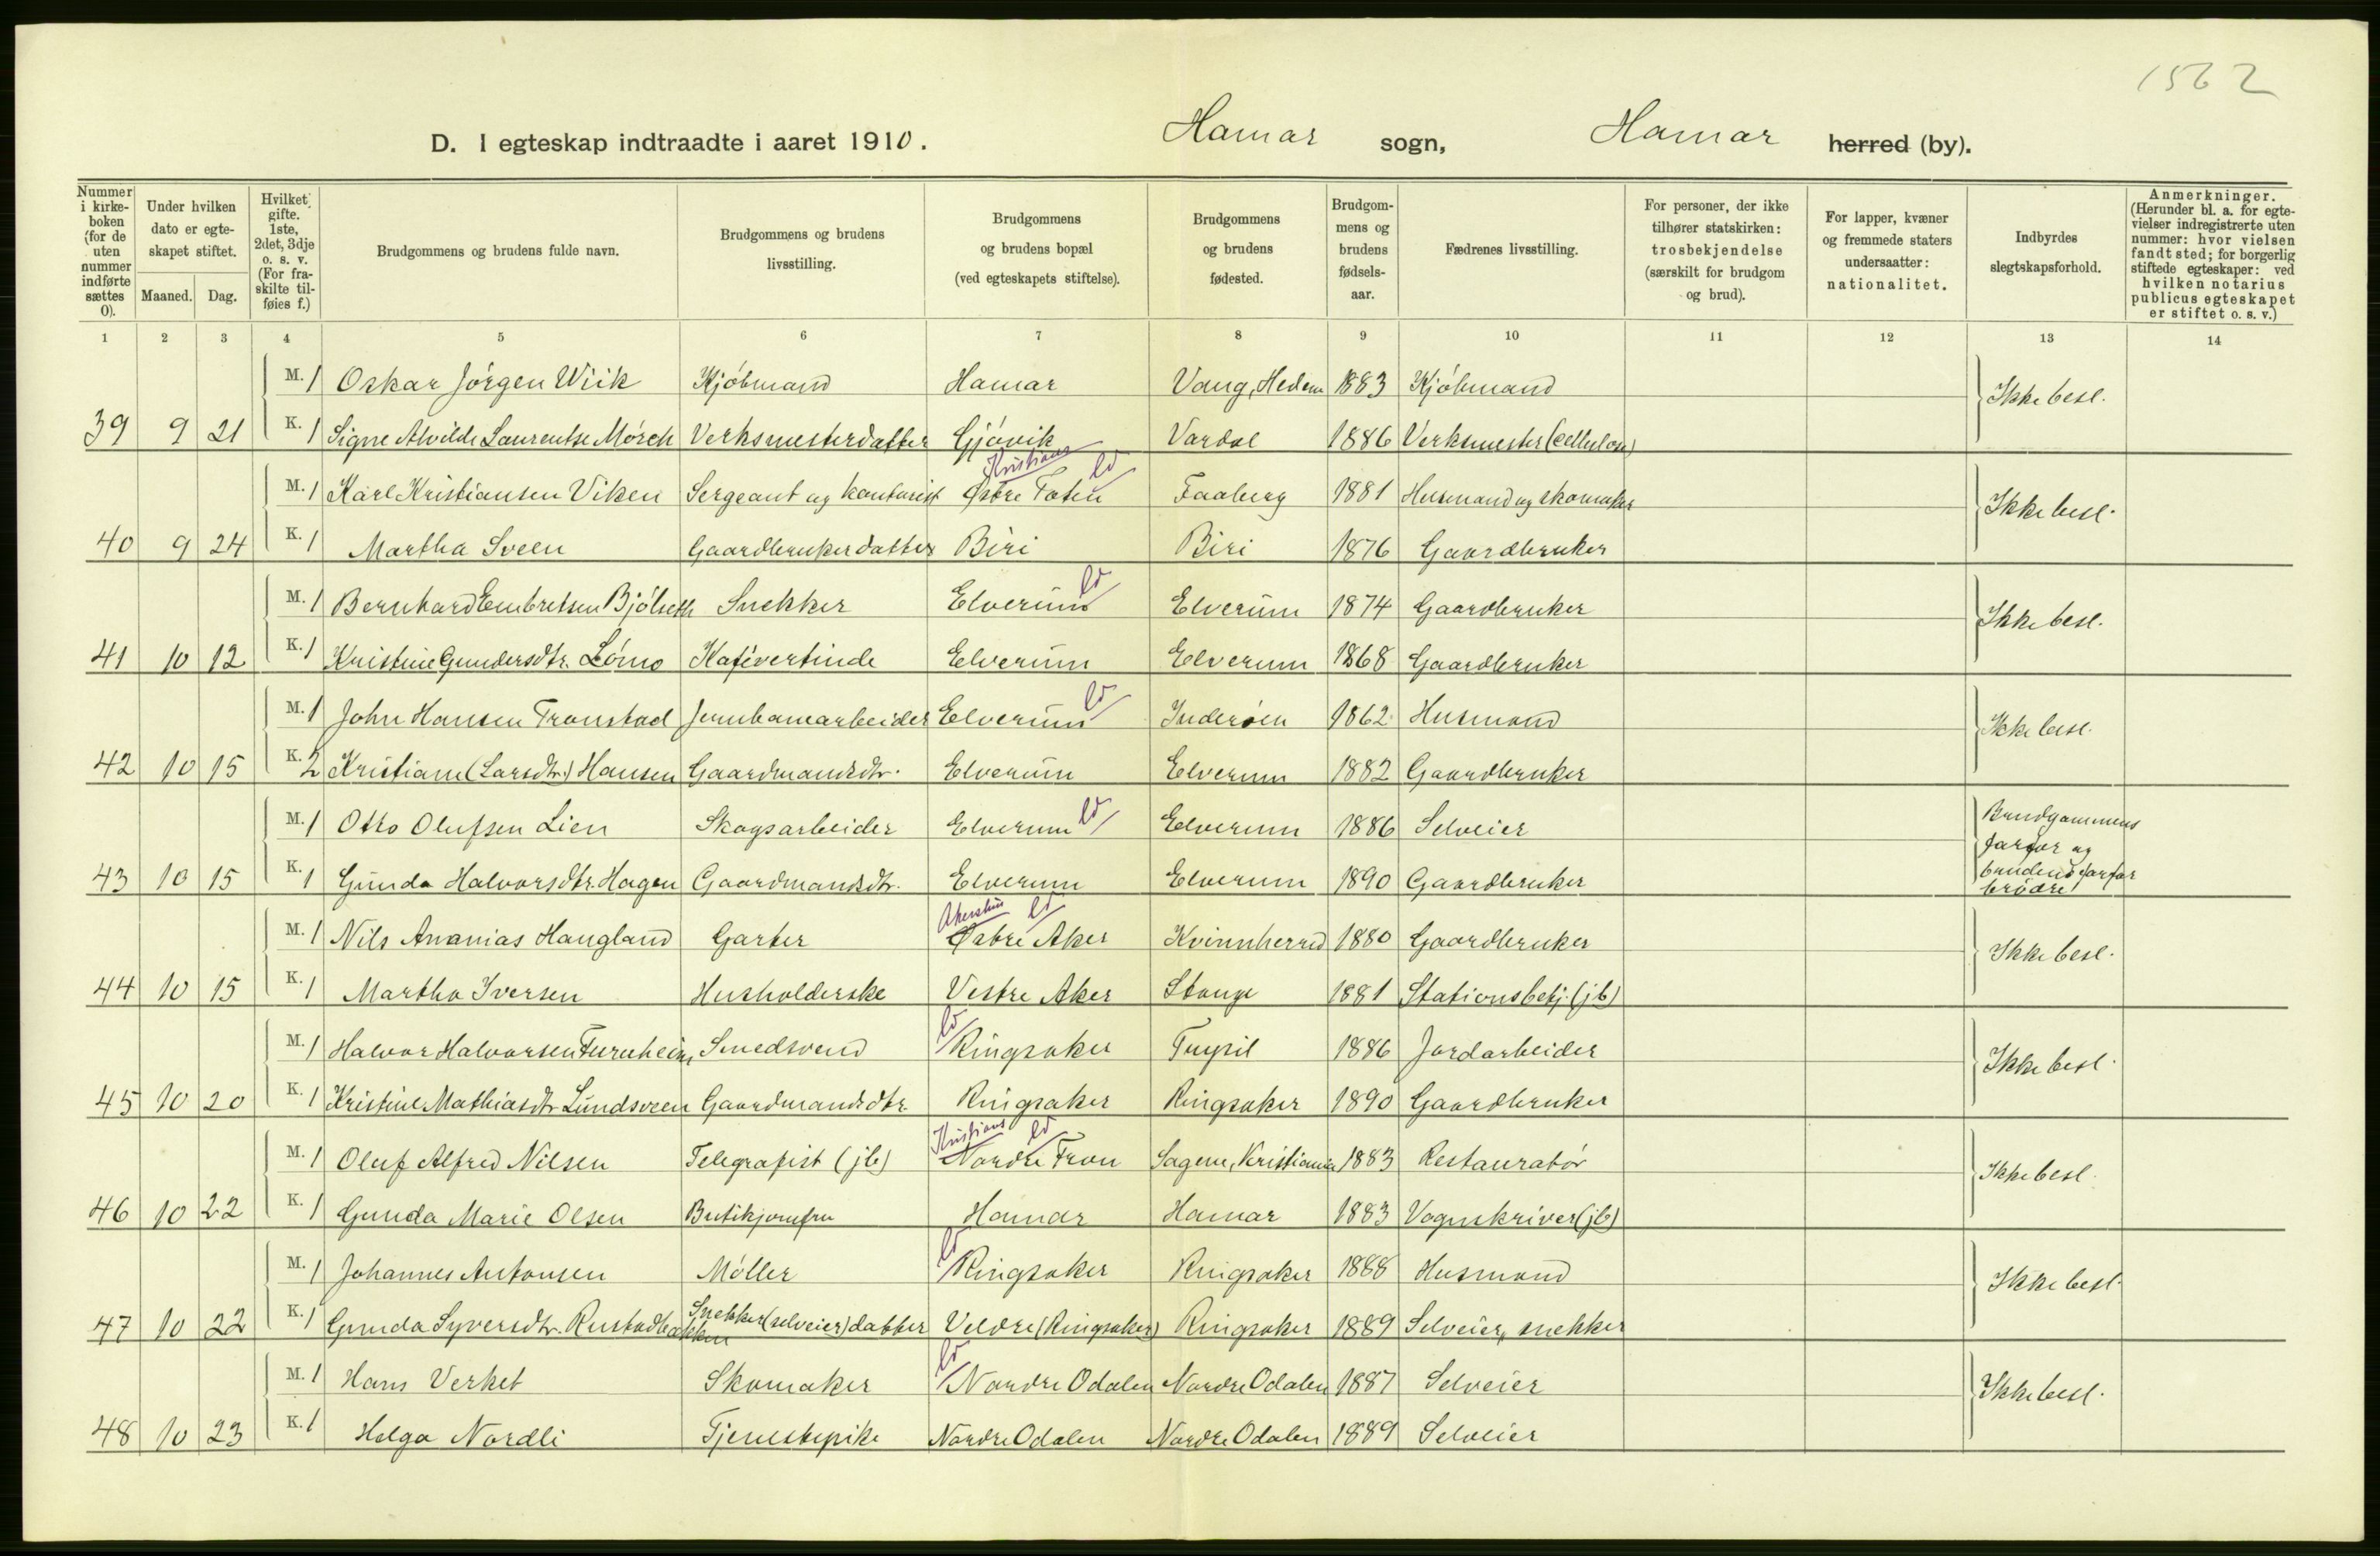 1562
D. I egteskap indtraadte i aaret 1910. Hamar sogn, Hamar herred (by).
Nummer i kirke-boken (for de uten nummer indførte sættes 0).
Under hvilken dato er egte-skapet stiftet.
Maaned. Dag.
Hvilket gifte. 1ste, 2det, 3dje o. s. v. (For fra-skilte til-føies f.)
Brudgommens og brudens fulde navn.
Brudgommens og brudens livsstilling.
Brudgommens og brudens bopæl (ved egteskapets stiftelse).
Brudgommens og brudens fødested.
Brudgom-mens og brudens fødsels-aar.
Fædrenes livsstilling.
For personer, der ikke tilhører statskirken: trosbekjendelse (særskilt for brudgom og brud).
For lapper, kvæner og fremmede staters undersaatter: nationalitet.
Indbyrdes slegtskapsforhold.
Anmerkninger. (Herunder bl. a. for egte-vielser indregistrerte uten nummer: hvor vielsen fandt sted; for borgerlig stiftede egteskaper: ved hvilken notarius publicus egteskapet er stiftet o. s. v.)
1 2 3 4 5 6 7 8 9 10 11 12 13 14
M. 1 Oskar Jörgen Wiik Kjöbmand Hamar Vang, Hedem 1883 Kjöbmand Ikke besl.
39 9 21 K. 1 Signe Alvilde Laurentse Mörch Verksmesterdatter Gjövik Vardal 1886 Verksmester (cellulose)
Kristians
M. 1 Karl Kristiansen Viken Sergeant og kontorist Østre Toten Faaberg 1881 Husmand og skomaker Ikke besl.
40 9 24 K. 1 Martha Sveen Gaardbrukerdatter Biri Biri 1876 Gaardbruker
M. 1 Bernhard Embretsen Bjölseth Snekker Elverum Elverum 1874 Gaardbruker Ikke besl.
41 10 12 K. 1 Kristine Gundersdtr. Lömo Kafévertinde Elverum Elverum 1868 Gaardbruker
M. 1 John Hansen Tronstad Jernbanearbeider Elverum Inderöen 1862 Husmand Ikke besl.
42 10 15 K. 2 Kristiane (Larsdtr.) Hansen Gaardmandsdtr. Elverum Elverum 1882 Gaardbruker
M. 1 Otto Olufsen Lien Skogsarbeider Elverum Elverum 1886 Selveier Brudgommens farfar og brudens farfar brödre
43 10 15 K. 1 Gunda Halvorsdtr. Hagen Gaardmandsdtr. Elverum Elverum 1890 Gaardbruker
Akershus
M. 1 Nils Ananias Haugland Gartner Østre Aker Kvinnherred 1880 Gaardbruker Ikke besl.
44 10 15 K. 1 Martha Iversen Husholderske Vestre Aker Stange 1881 Stationsbetj. (jb)
M. 1 Halvor Halvorsen Furuheim Smedsvend Ringsaker Trysil 1886 Jordarbeider Ikke besl.
45 10 20 K. 1 Kristine Mathiasdtr Lundsveen Gaardmandsdtr. Ringsaker Ringsaker 1890 Gaardbruker
Kristians
M. 1 Oluf Alfred Nilsen Telegrafist (jb) Nordre Fron Sagene, Kristiania 1883 Restauratör Ikke besl.
46 10 22 K. 1 Gunda Marie Olsen Butikjomfru Hamar Hamar 1883 Vognskriver (jb)
M. 1 Johannes Antonsen Möller Ringsaker Ringsaker 1888 Husmand Ikke besl.
47 10 22 K. 1 Gunda Syversdtr. Rustadbakken Snekker (selveier) datter Veldre (Ringsaker) Ringsaker 1889 Selveier, snekker
M. 1 Hans Verket Skomaker Nordre Odalen Nordre Odalen 1887 Selveier Ikke besl.
48 10 23 K. 1 Helga Nordli Tjenestepike Nordre Odalen Nordre Odalen 1889 Selveier